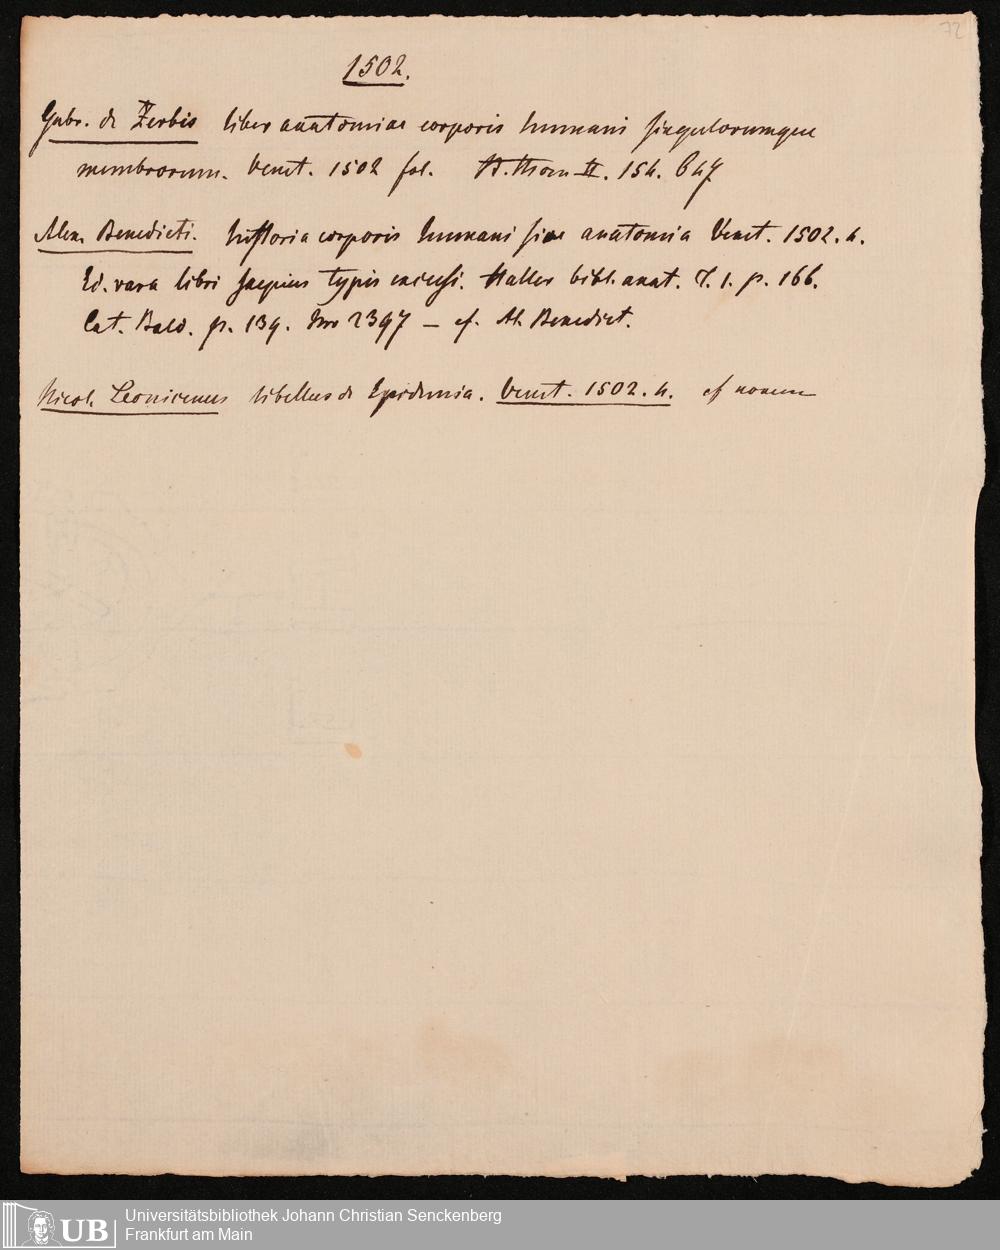 72
1502.
Gabr. de Zerbis liber anatomiae corporis humani singulorumque
membrorum. Venet. 1502 fol. II. 154. 647
Alex. Benedicti. historia corporis humani sive anatomia Venet. 1502. 4.
Ed. rara libri saepius typis excusi. Haller bibl. anat. T. 1. p. 166.
Cat. Bald. p. 139. Nro 2397 – cf. Al. Benedict.
Nicol. Leonicenus libellus de Epidemia. Venet. 1502. 4. cf nomen
UB
Universitätsbibliothek Johann Christian Senckenberg
Frankfurt am Main